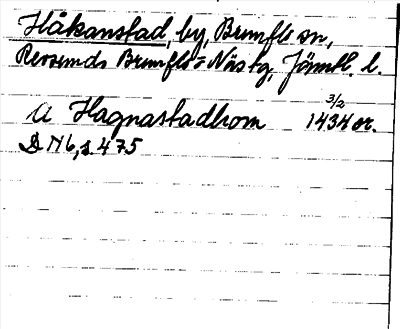 Håkanstad, by, Brunflo sn,
Revsunds Brunflo- o Näs tg, Jämtl. l.
U Hagnastadhom 3/2 1434 or.
DN 6, s. 475